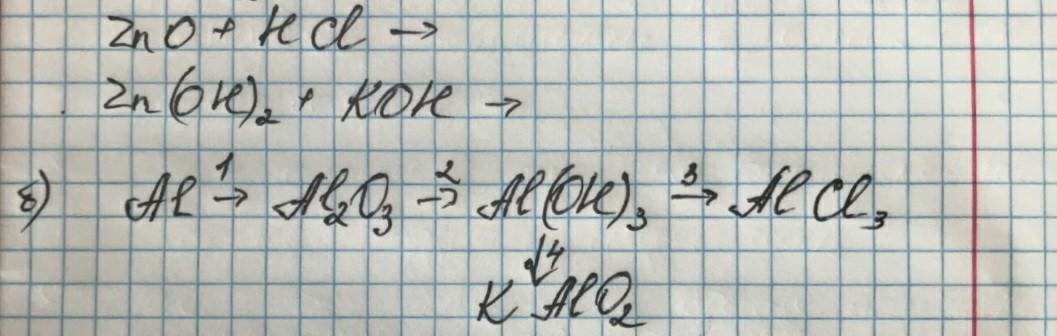 ZnO + HCl →
Zn(OH)₂ + KOH →
б) Al →¹ Al₂O₃ →² Al(OH)₃ →³ AlCl₃
↓4
KAlO₂